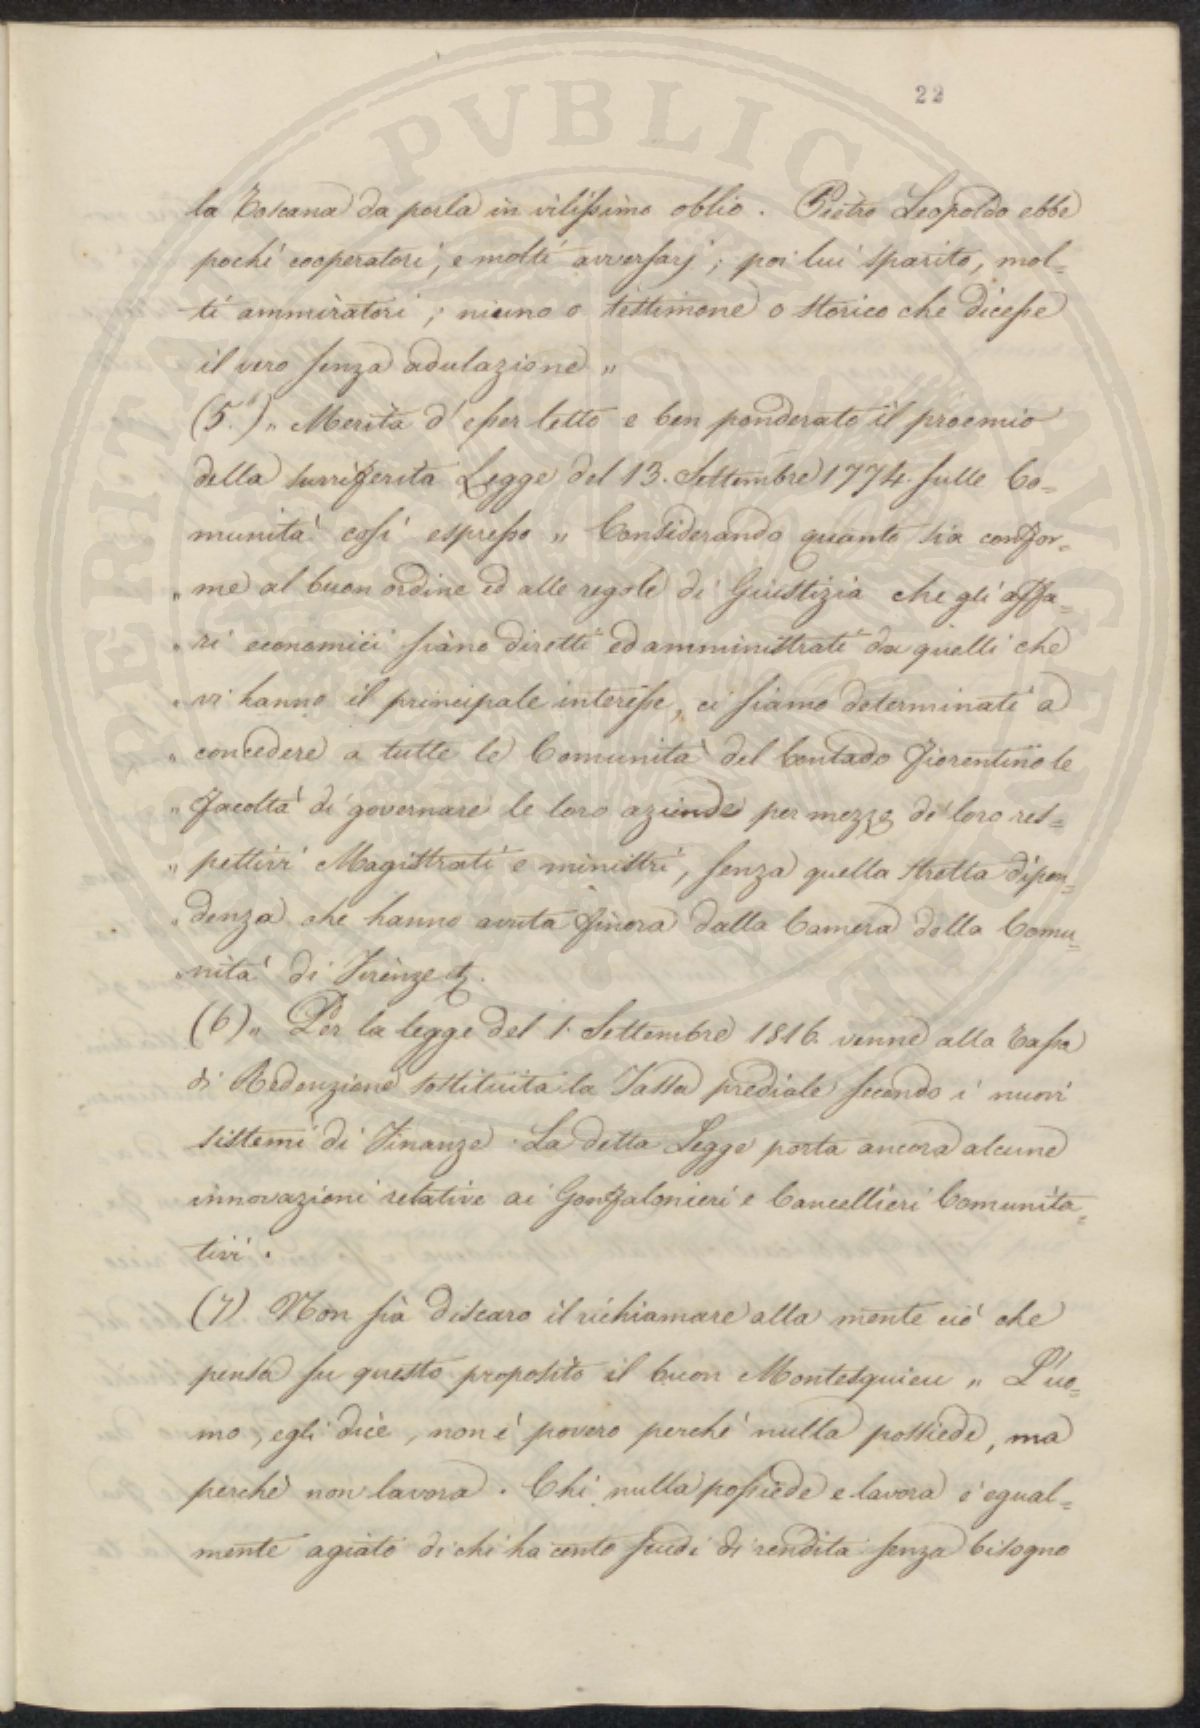 22
la Toscana da porla in vilissimo oblio. Pietro Leopoldo ebbe
pochi cooperatori, e molti avversarj; poi lui sparito, mol=
ti ammiratori; niuno o testimone o storico che dicesse
il vero senza adulazione "
(5.) " Merita d'esser letto e ben ponderato il proemio
della surriferita Legge del 13. Settembre 1774. sulle Co=
munità così espresso " Considerando quanto sia confor=
" me al buon ordine ed alle regole di Giustizia che gli affa=
" ri economici siano diretti ed amministrati da quelli che
" vi hanno il principale interesse, ci siamo determinati a
" concedere a tutte le Comunità del Contado Fiorentino le
" facoltà di governare le loro aziende per mezzo de' loro res=
" pettivi Magistrati e ministri, senza quella stretta dipen=
" denza che hanno avuta finora dalla Camera della Comu=
" nità di Firenze &.
(6) " Per la legge del 1. Settembre 1816. venne alla Tassa
di Redenzione sostituita la Tassa prediale secondo i nuovi
sistemi di Finanze. La detta Legge porta ancora alcune
innovazioni relative ai Gonfalonieri e Cancellieri Comunita=
tivi.
(7) Non sia discaro il richiamare alla mente ciò che
pensa su questo proposito il buon Montesquieu " L'uo=
mo, egli dice, non è povero perchè nulla possiede, ma
perchè non lavora. Chi nulla possiede e lavora è egual=
mente agiato di chi ha cento scudi di rendita senza bisogno
PVBLICAE
VERITATI